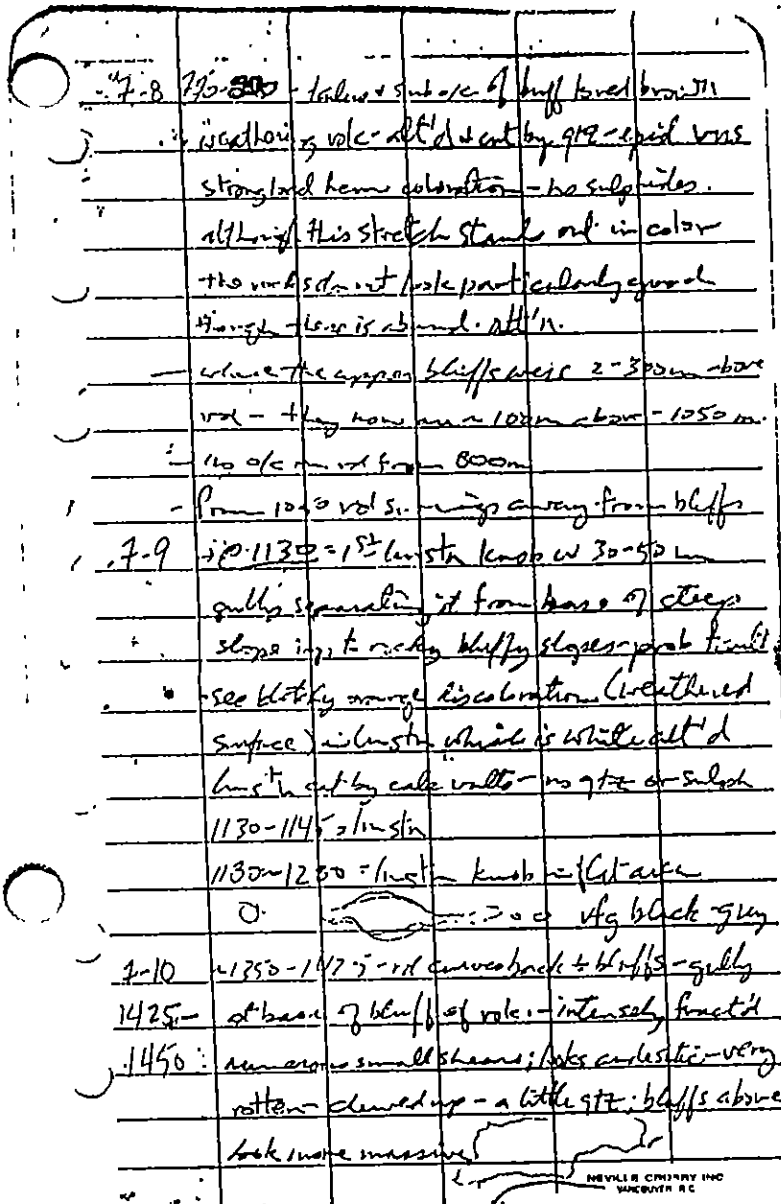 7-8 770-800 - talus & sub o/c of buff toned brown
weathering volc - alt'd & cut by qtz-epid vns
strong hem coloration - no sulphides.
although this stretch stands out in color
the rocks don't look particularly good
though there is abund. alt'n.
- where the upper bluffs were 2-300m above
rd - they now are ~ 100m above - 1050 m.
- no o/c on rd from 800m
- From 1050 rd swings away from bluffs
7-9 1130 = 1st lmstn knob w 30-50 m
gully separating it from base of steep
slope into rocky bluffy slopes - prob fault
- see blotchy orange discoloration (weathered
surface) in lmstn which is white alt'd
lmstn cut by calc vnlts - no qtz or sulph
1130-1145 = lmstn
1130-1200 = lmstn knob = flat area
0 200 vfg black-grey
7-10 ~1350-1425 - rd curves back to bluffs - gully
1425- at base of bluff of volc. - intensely fract'd
1450: numerous small shears; looks andesitic - very
rotten - chewed up - a little qtz; bluffs above
look more massive
NEVILLE CROSBY INC
VANCOUVER BC